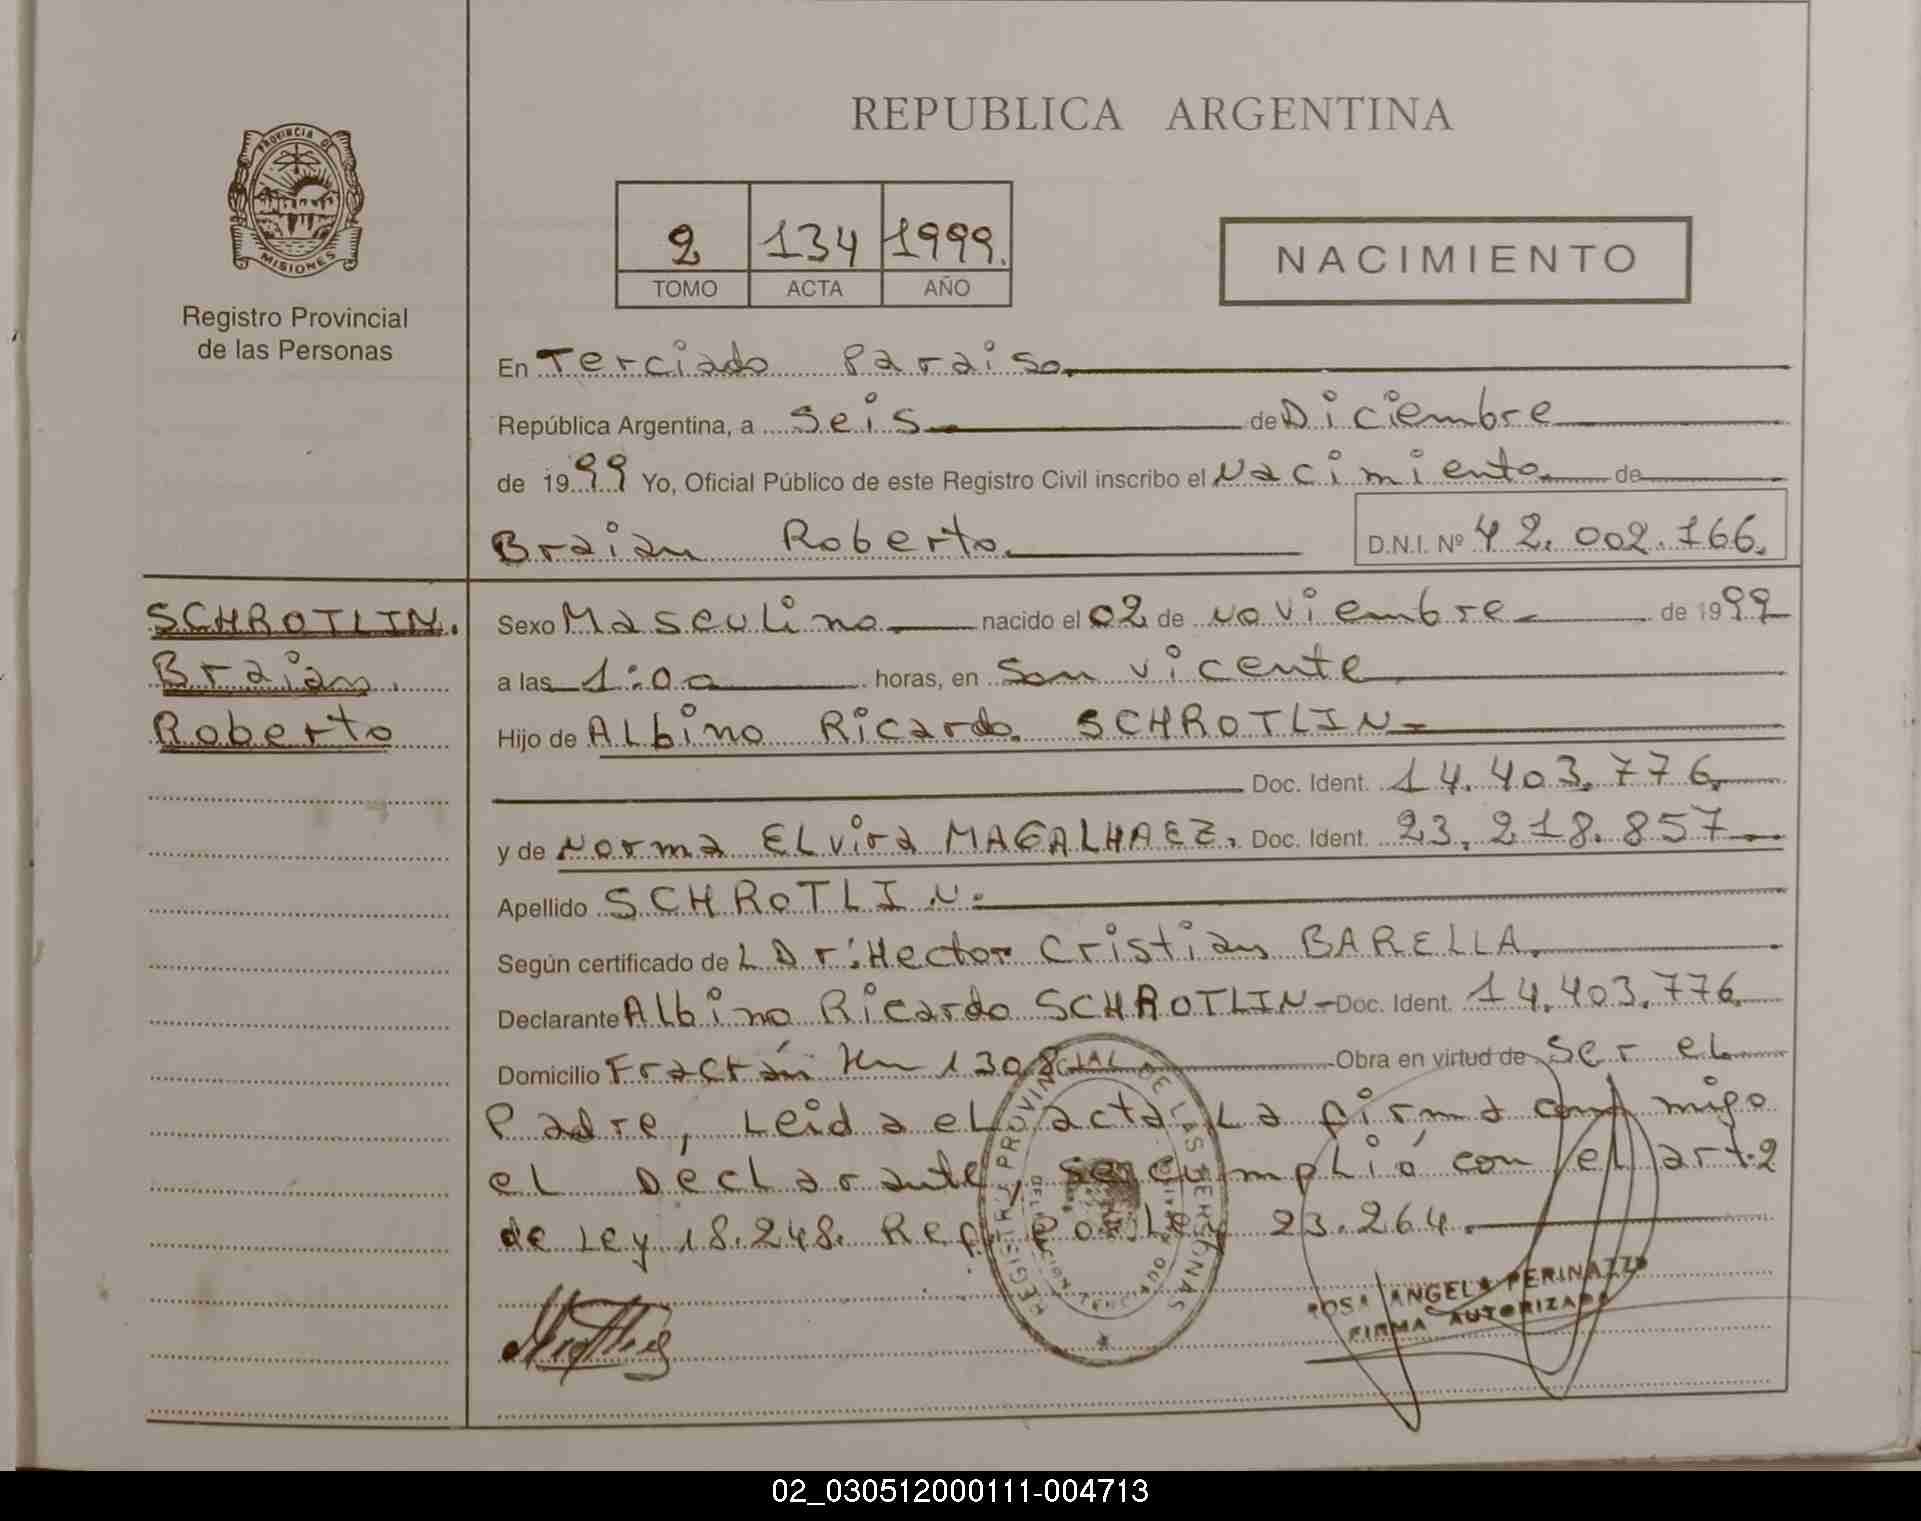 REPUBLICA ARGENTINA
PROVINCIA DE
MISIONES
Registro Provincial
de las Personas
2 134 1999.
TOMO ACTA AÑO
NACIMIENTO
En Terciado Paraiso
República Argentina, a Seis de Diciembre
de 1999 Yo, Oficial Público de este Registro Civil inscribo el Nacimiento de
Braian Roberto. D.N.I. Nº 42.002.166.
SCHROTLIN.
Braian.
Roberto
Sexo Masculino nacido el 02 de Noviembre de 1999
a las 1:00 horas, en San Vicente
Hijo de Albino Ricardo SCHROTLIN-
Doc. Ident. 14.403.776
y de Norma ELvira MAGALHAEZ. Doc. Ident. 23.218.857
Apellido SCHROTLIN.
Según certificado de L Dr: Hector Cristian BARELLA.
Declarante Albino Ricardo SCHROTLIN- Doc. Ident. 14.403.776
Domicilio Fractán Km 1308 Obra en virtud de Ser el
Padre, Leida el acta La firma con migo
el Declarante, se cumplió con el art.2
de Ley 18.248. Ref. por Ley 23.264.
REGISTRO PROVINCIAL DE LAS PERSONAS
ROSA ANGELA PERINAZZO
FIRMA AUTORIZADA
02_030512000111-004713